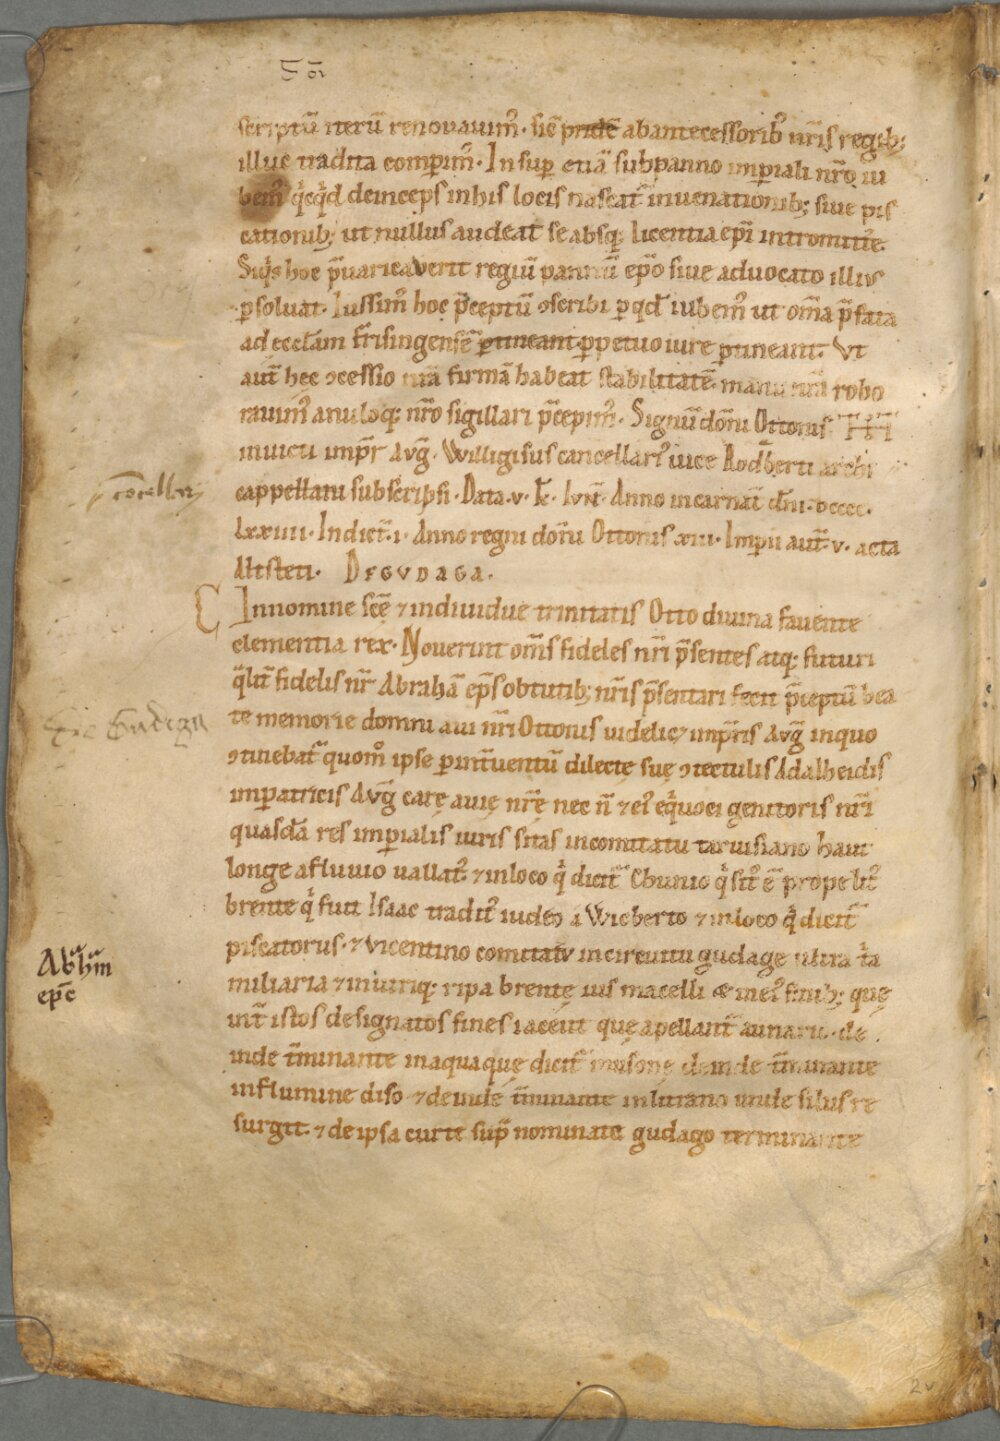 scriptū iterū renovavim᷒. sic̄ pridē abantecessorib᷒ nr̄is regib;
illuc tradita comꝑim᷒. Insup etiā subpanno imꝑiali nr̄o iu
bem᷒ qͥcqͥd deinceps inhis locis nascat᷑ inuenationib; siue pis
cationib; ut nullus audeat se absq; licentia ep̄i intromitte᷑.
Siqͥs hoc p̄uaricaverit regiū pannū ep̄o siue advocato illius
ꝑsoluat. Iussim᷒ hoc p̄ceptū ꝯscribi ꝑ qd̄ iubem᷒ ut om̄a p̄fata
ad eccl̄am frisingensē ꝑtineant ꝑpetuo iure ꝑtineant. Vt
aut̄ hec ꝯcessio firmā habeat stabilitatē. manu nr̄a robo
ravim᷒ anuloq; nr̄o sigillari p̄cepim᷒. Signū dom̄i Ottonis
inuicti imp̄r Avḡ. Willigisus cancellari᷒ uice Rodb̄erti archi
cappellani subscripsi. Data .v. k̄. Iun̄. Anno incarnat̄ dn̄i. dcccc.
lxxiiii. Indict̄. i. Anno regni dom̄i Ottonis xiii. Imperii aut̄. v. acta
Altsteti. DEGVDAGA.
C Innomine sc̄ę ⁊ indiuidue trinitatis Otto diuina favente
clementia rex. Noverint om̄s fideles nr̄i p̄sentes atq; futuri
qͣlit̄ fidelis nr̄ Abrahā ep̄s obtutib; nr̄is p̄sentari fecit p̄ceptū bea
te memorie domni aui nr̄i Ottonis uidelic⁊ imp̄ris Avḡ inquo
ꝯtinebat᷑ quom̊ ipse ꝑ int̄uentū dilectę suę ꝯtectalis Adalheidis
imꝑatricis Avḡ carę auię nr̄ę nec n̄ ⁊ ei᷒ eqͥuoci genitoris nr̄i
quasdā res imꝑialis iuris sitas incomitatu taruisiano haut
longe afluvio uallat᷑ ⁊ inloco qͥ dicit᷑ Chunio qͥ sit᷒ ē prope lit᷒
brente qͥ fuit Isaac tradit᷒ iudeo a Wicberto ⁊ inloco qͥ dicit᷑
piscatorus. ⁊ vicentino comitatv incircuitu gudage ultra tͥa
miliaria ⁊ inutriq; ripa brentę ius macelli æ inei᷒ finib; quę
int̄ istos designatos fines iacent quę apellant᷑ aunario. de
inde t̄minante inaqua quę dicit᷑ musonę deinde t̄minante
influmine diso ⁊ deinde t̄minante inlitiano unde silus re
surgit. ⁊ de ipsa curte sup̄ nominata gudago terminante
Abͣhͣm
ep̄c
2v